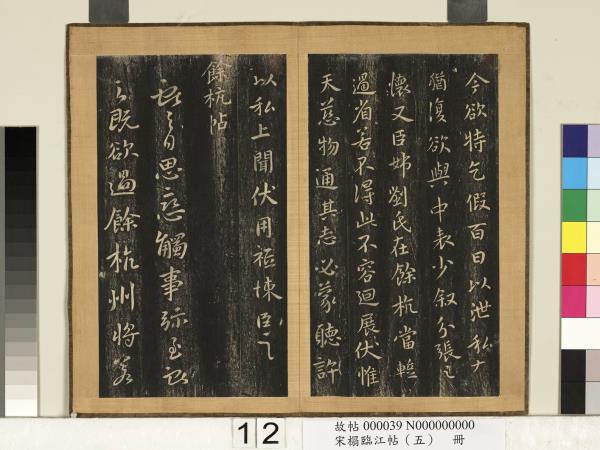 今欲特乞假百日以泄私
猶復欲與中表少敘分張
懷又臣姊劉氏在餘杭當
過省若不得此不容迴展伏惟
天慈物通其志必蒙聽許
以私上聞伏用祗悚臣
餘杭帖
日思戀觸事彌至
既欲過餘杭州將若
12
故帖 000039 N000000000
宋榻臨江帖（五） 冊